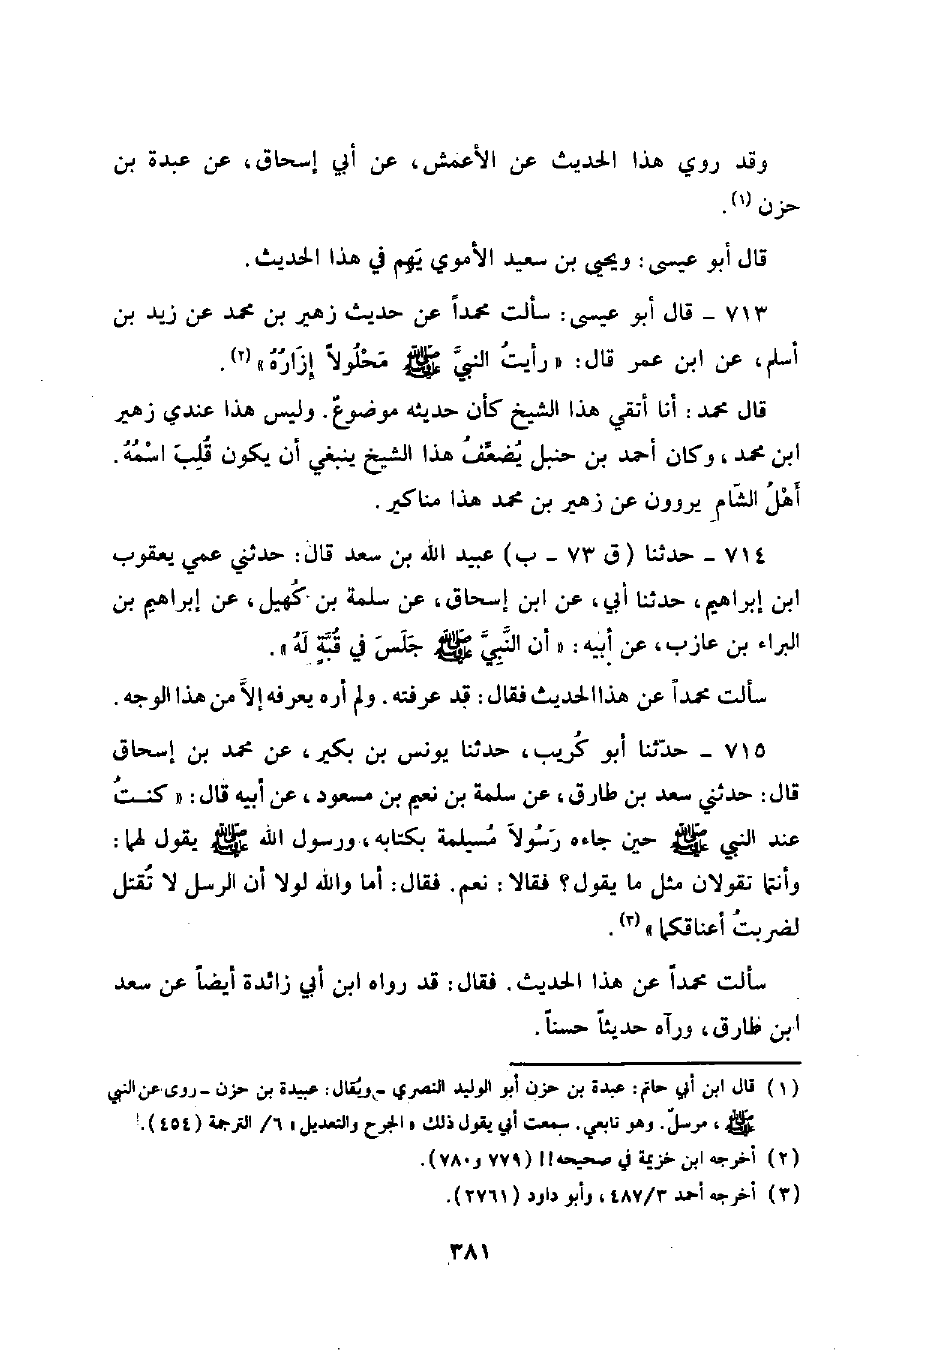 وقد روي هذا الحديث عن الأعمش، عن أبي إسحاق، عن عبدة بن
حزن (١).
قال أبو عيسى: ويحيى بن سعيد الأموي يَهِم في هذا الحديث.
٧١٣ - قال أبو عيسى: سألت محمداً عن حديث زهير بن محمد عن زيد بن
أسلم، عن ابن عمر قال: « رأيتُ النبيَّ ﷺ مَحْلُولاً إِزَارُهُ » (٢).
قال محمد: أنا أتقي هذا الشيخ كأن حديثه موضوعٌ. وليس هذا عندي زهير
ابن محمد، وكان أحمد بن حنبل يُضعَّفُ هذا الشيخ ينبغي أن يكون قُلِبَ اسْمُهُ.
أَهْلُ الشَّامِ يروون عن زهير بن محمد هذا مناكير.
٧١٤ - حدثنا (ق ٧٣ - ب) عبيد الله بن سعد قال: حدثني عمي يعقوب
ابن إبراهيم، حدثنا أبي، عن ابن إسحاق، عن سلمة بن كُهيل، عن إبراهيم بن
البراء بن عازب، عن أبيه: « أن النَّبِيَّ ﷺ جَلَسَ في قُبَّةٍ لَهُ ».
سألت محمداً عن هذا الحديث فقال: قد عرفته. ولم أره يعرفه إلاَّ من هذا الوجه.
٧١٥ - حدّثنا أبو كُريب، حدثنا يونس بن بكير، عن محمد بن إسحاق
قال: حدثني سعد بن طارق، عن سلمة بن نعيم بن مسعود، عن أبيه قال: « كنـتُ
عند النبي ﷺ حين جاءه رَسُولاَ مُسيلمة بكتابه، ورسول الله ﷺ يقول لهما:
وأنتما تقولان مثل ما يقول؟ فقالا: نعم. فقال: أما والله لولا أن الرسل لا تُقتل
لضربتُ أعناقكما » (٣).
سألت محمداً عن هذا الحديث. فقال: قد رواه ابن أبي زائدة أيضاً عن سعد
ابن طارق، ورآه حديثاً حسناً.
(١) قال ابن أبي حاتم: عبدة بن حزن أبو الوليد النصري - ويُقال: عبيدة بن حزن - روى عن النبي
ﷺ، مرسلٌ. وهو تابعي. سمعت أبي يقول ذلك « الجرح والتعديل » ٦/ الترجمة (٤٥٤).
(٢) أخرجه ابن خزيمة في صحيحه!! (٧٧٩ و٧٨٠).
(٣) أخرجه أحمد ٤٨٧/٣، وأبو داود (٢٧٦١).
٣٨١